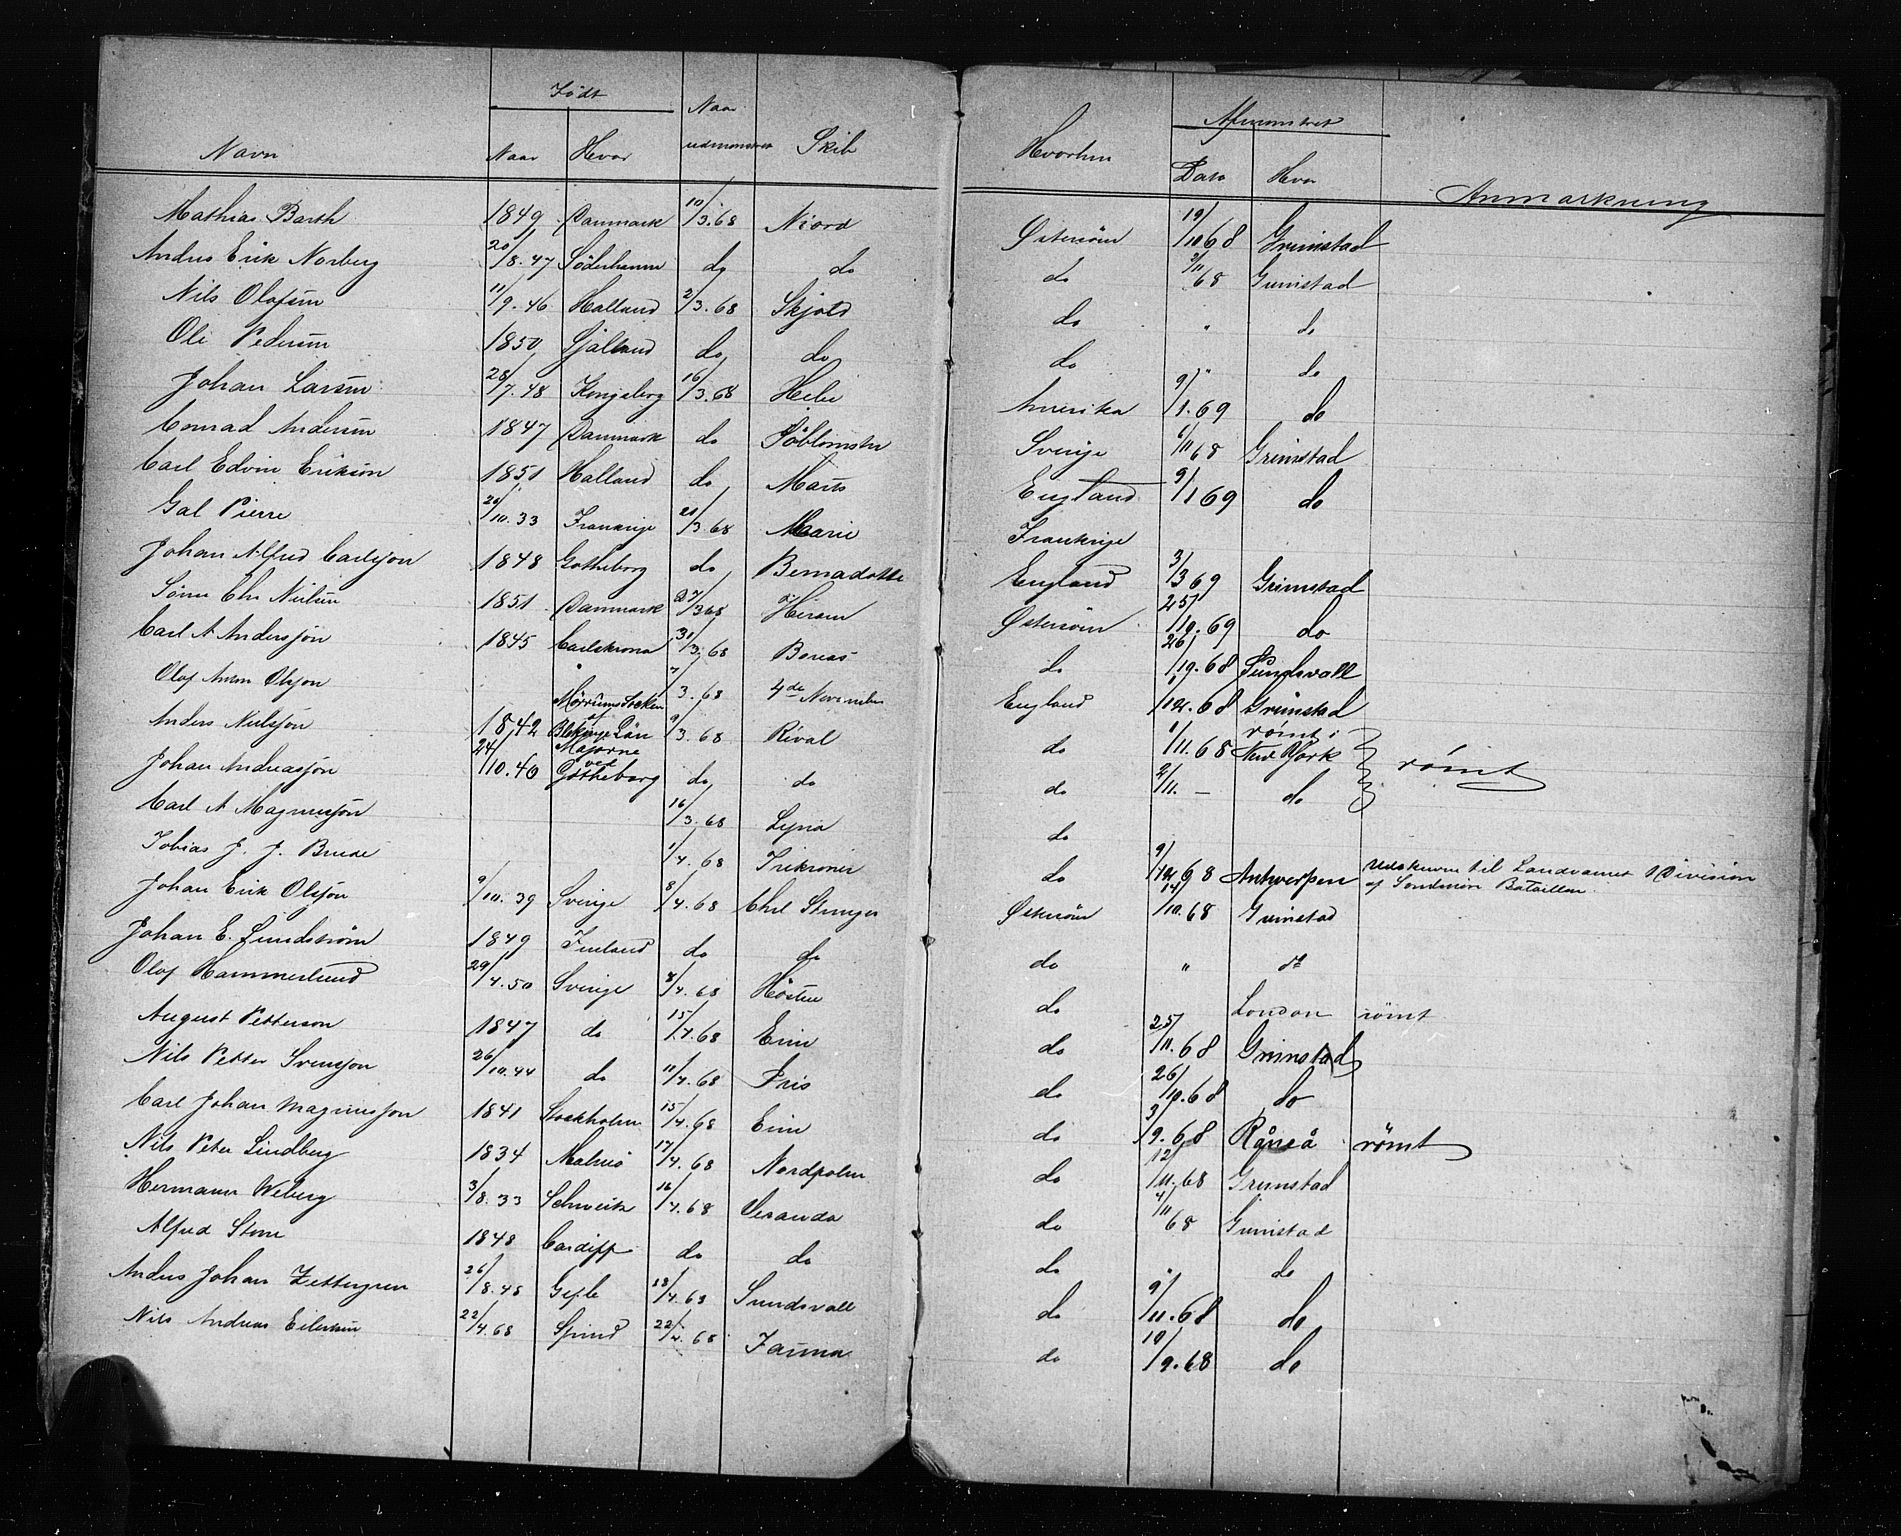 Født Naar Afmønstret
Navn Naar Hvor Skib Hvorhen Dato Hvor Anmærkning
Mathias Barth 1849 Danmark 10/3.68 Niord Østersøen 19/10 68 Grimstad
Andres Erik Norberg 20/8.47 Söderhamn do do do 68 Grimstad
Nils Olafsen 11/9.46 Halland 2/3.68 Skjold do " do
Ole Pedersen 1850 Sjælland do do do " do
Johan Larsen 28/7.48 Kongsberg 16/3.68 Hebe Amerika 9/1.69 do
Conrad Andersen 1847 Danmark do Søblomsten Sverige 6/11 68 Grimstad
Carl Edvin Erikson 1851 Halland do Mars England 9/1 69 do
Gal Pierre 20/10.33 Frankrige 21/3.68 Marie Frankrige
Johan Alfred Carlsjon 1848 Gotheborg do Bernadotte England 3/3 69 Grimstad
Søren Chr Nielsen 1851 Danmark 27/3 68 Hiram Østersøen 25/10.69 do
Carl A Andersjon 1845 Carlskrona 31/3.68 Boreas do 26/9.68 Sundsvall
Olof Olsjon 7/3.68 4de November England /12.68 Grimstad
Anders Nielsjon 1842 Mörrums Socken af Blekinge Län 9/3.68 Rival do 1/11.68 rømt i New York rømt
Johan Andreasjon 24/10.40 Majorne ved Gotheborg do do do 2/11. — do
Carl A Magnusjon 16/3.68 Lyna do
Tobias J. J. Brude 1/4.68 Trekroner do 9/12 68 Antwerpen Udskreven til Landværnet Division
af Bataillon
Johan Erik Olsjon 9/10.39 Sverige 8/4.68 Chr Østersøen 14/10.68 Grimstad
Johan E. Lundstrøm 1849 Finland do do do " do
Olof Hammerlund 29/4.50 Sverige 8/4.68 Høsten do London rømt
August Petterson 1847 do 15/4.68 Eine do 25/11.68 Grimstad
Nils Petter Svensjon 26/10.44 do 11/4.68 Iris do 26/10.68 do
Carl Johan Magnusjon 1841 Stockholm 15/4.68 Eine do 3/9.68 Råneå rømt
Nils Peter Lindberg 1834 Malmö 17/4.68 Nordpolen do 12/11.68 Grimstad
Hermann Weberg 3/8.33 16/4.68 Veranda do 4/11 68 Grimstad
Alfred Stone 1848 Cardiff do do do " do
Andres Johan Zettergren 26/8.48 Gefle 18/4.68 Sundsvall do 9/11.68 do
Nils Andreas Eilertsen 22/4.68 Spind 22/4.68 Fauna do 10/9.68 do